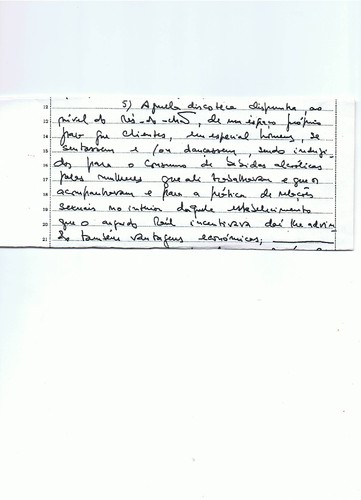 12 5) Aquela discoteca dispunha ao
13 nível do rés-do-chão, de um espaço próprio
14 para que clientes, em especial homens, se
15 sentassem e /ou dançassem, sendo induzi-
16 dos para o consumo de bebidas alcoólicas
17 pelas mulheres que ali trabalhavam e que os
18 acompanhavam e para a prática de relações
19 sexuais no interior daquele estabelecimento
20 que o arguido Raúl incentivava daí lhe advin-
21 do também vantagens económicas;